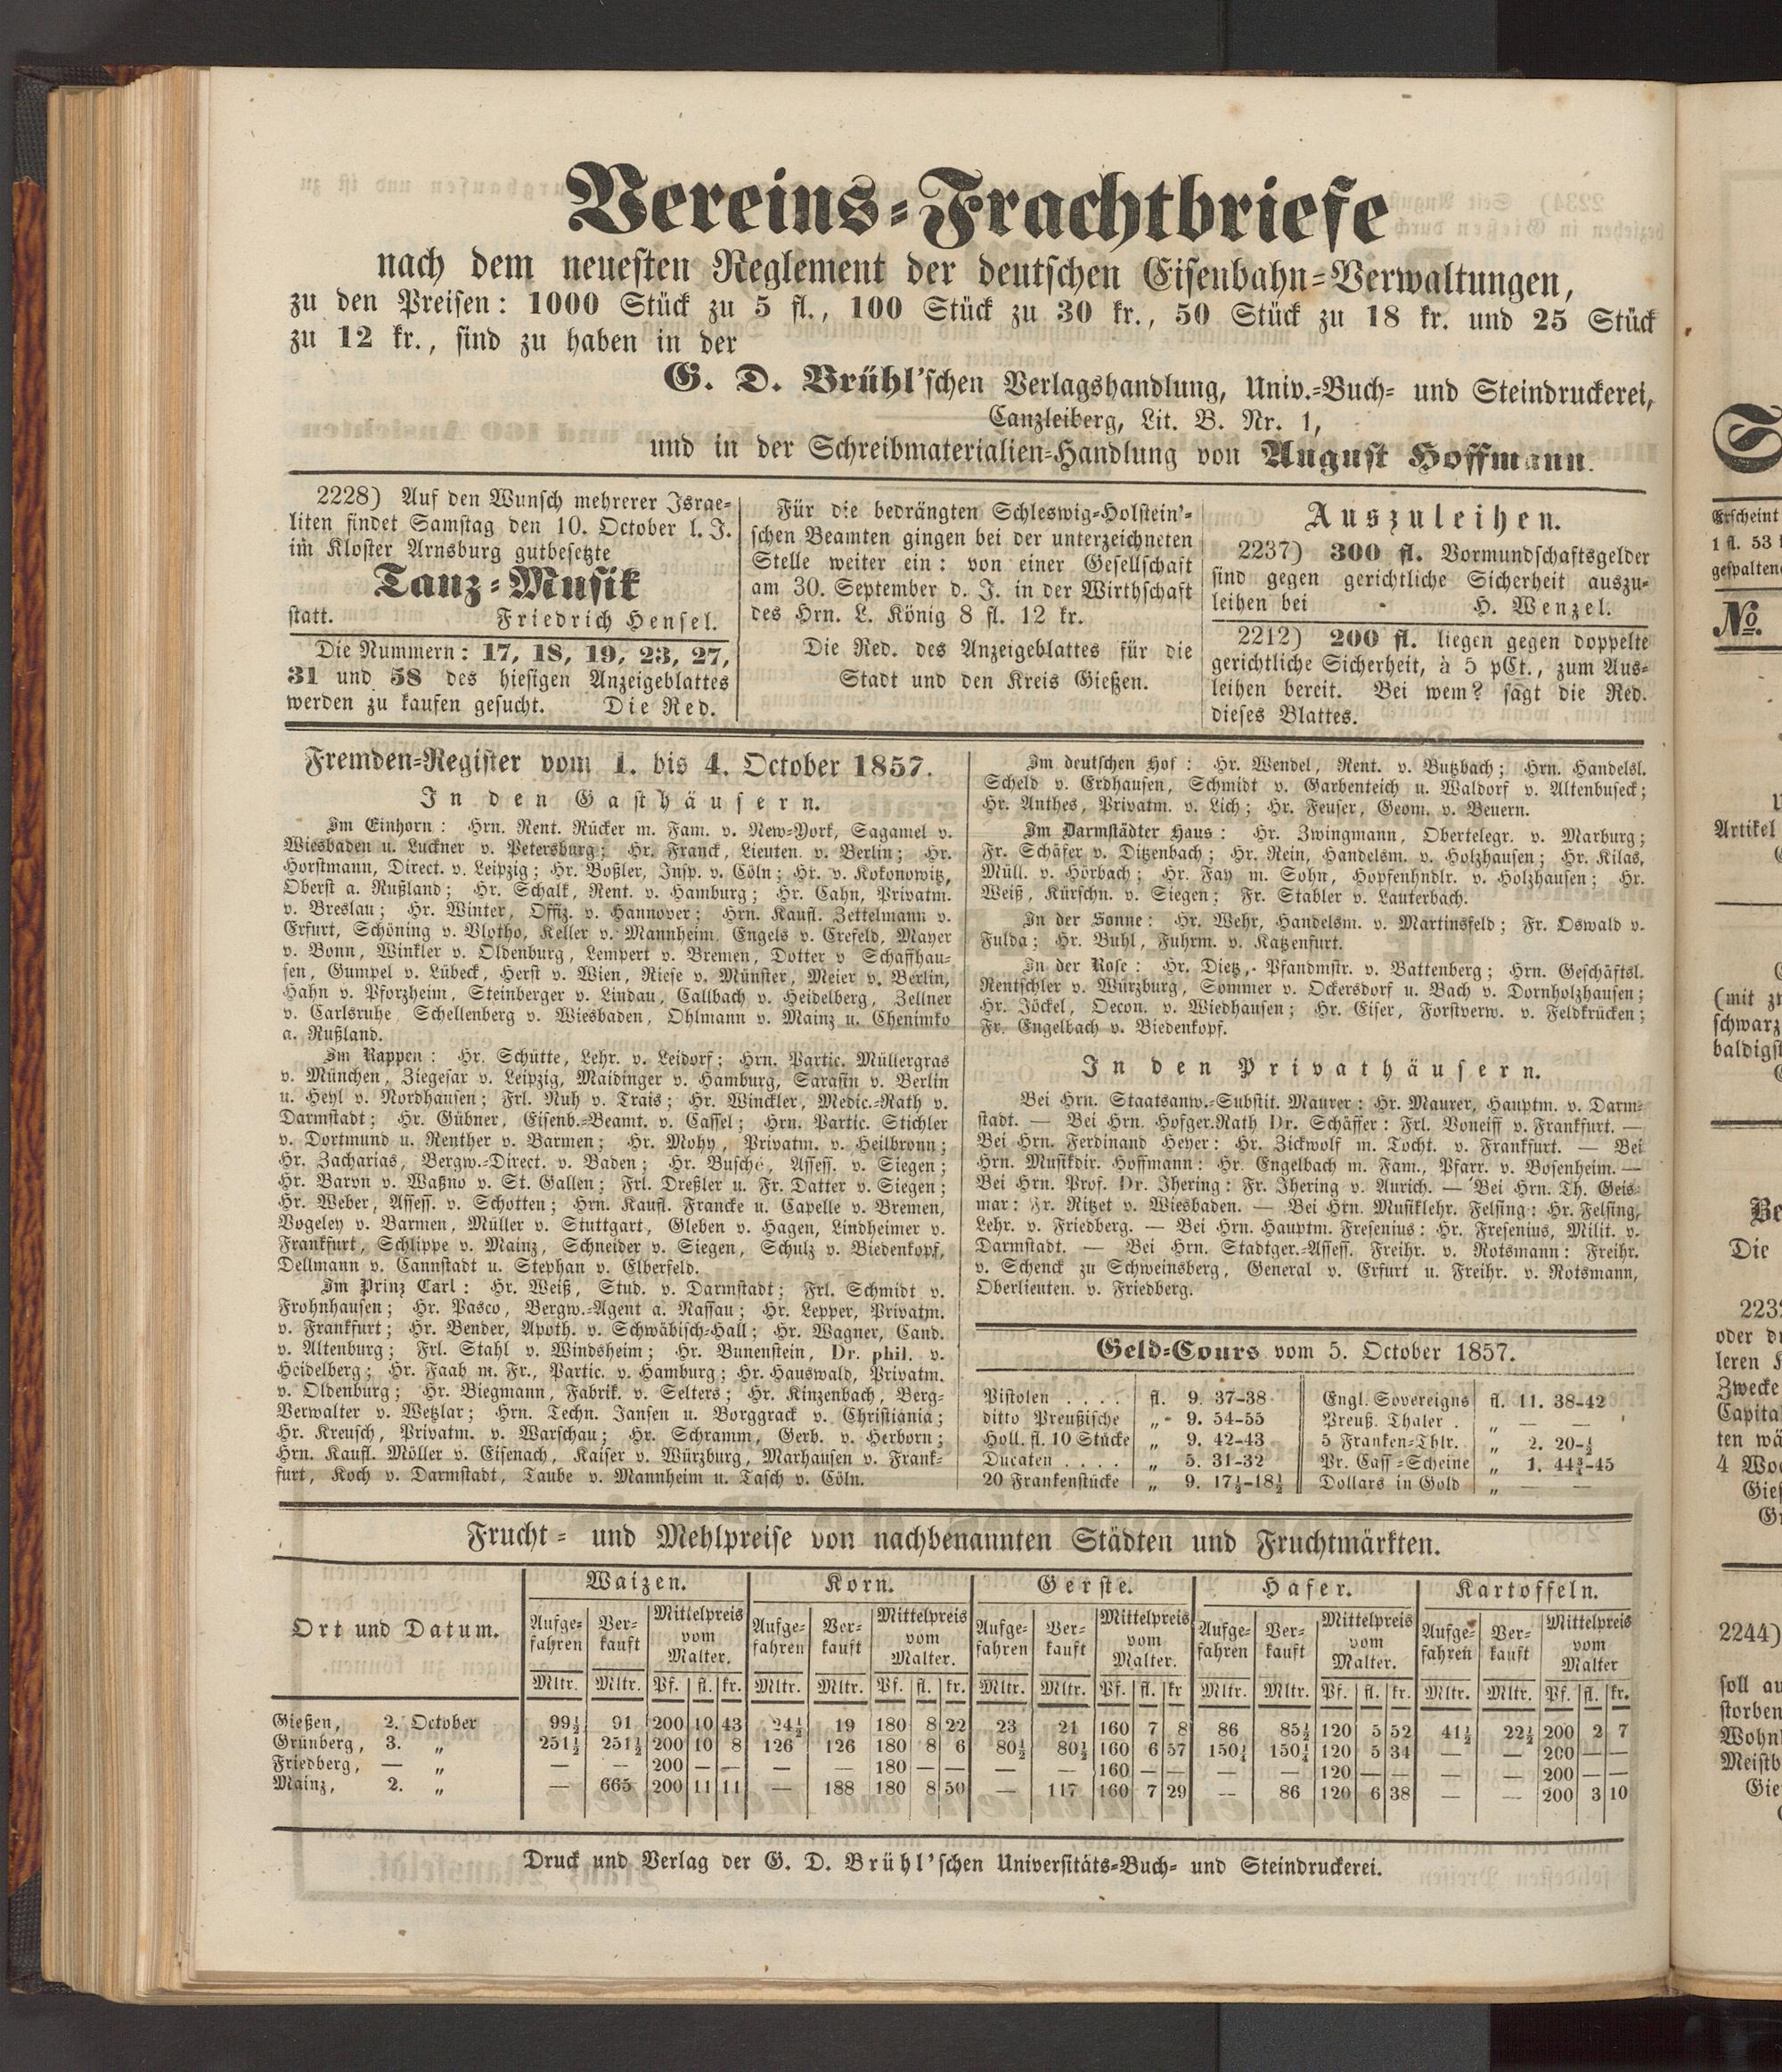 Vereins-Frachtbriefe
nach dem neuesten Reglement der deutschen Eisenbahn-Verwaltungen,
zu den Preisen: 1000 Stück zu 5 fl., 100 Stück zu 30 kr., 50 Stück zu 18 kr. und 25 Stück
zu 12 kr., sind zu haben in der
G. D. Brühl'schen Verlagshandlung, Univ.-Buch- und Steindruckerei,
Canzleiberg, Lit. B. Nr. 1,
und in der Schreibmaterialien-Handlung von August Hoffmann.
2228) Auf den Wunsch mehrerer Israe-
liten findet Samstag den 10. October l. J.
im Kloster Arnsburg gutbesetzte
Tanz-Musik
statt. Friedrich Hensel.
Die Nummern: 17, 18, 19, 23, 27,
31 und 58 des hiesigen Anzeigeblattes
werden zu kaufen gesucht. Die Red.
Für die bedrängten Schleswig-Holstein'-
schen Beamten gingen bei der unterzeichneten
Stelle weiter ein: von einer Gesellschaft
am 30. September d. J. in der Wirthschaft
des Hrn. L. König 8 fl. 12 kr.
Die Red. des Anzeigeblattes für die
Stadt und den Kreis Gießen.
Auszuleihen.
2237) 300 fl. Vormundschaftsgelder
sind gegen gerichtliche Sicherheit auszu-
leihen bei H. Wenzel.
2212) 200 fl. liegen gegen doppelte
gerichtliche Sicherheit, à 5 pCt., zum Aus-
leihen bereit. Bei wem? sagt die Red.
dieses Blattes.
Fremden-Register vom 1. bis 4. October 1857.
In den Gasthäusern.
Im Einhorn: Hrn. Rent. Rücker m. Fam. v. New-York, Sagamel v.
Wiesbaden u. Luckner v. Petersburg; Hr. Franck, Lieuten. v. Berlin; Hr.
Horstmann, Direct. v. Leipzig; Hr. Boßler, Insp. v. Cöln; Hr. v. Kokonowitz,
Oberst a. Rußland; Hr. Schalk, Rent. v. Hamburg; Hr. Cahn, Privatm.
v. Breslau; Hr. Winter, Offiz. v. Hannover; Hrn. Kaufl. Zettelmann v.
Erfurt, Schöning v. Vlotho, Keller v. Mannheim, Engels v. Crefeld, Mayer
v. Bonn, Winkler v. Oldenburg, Lempert v. Bremen, Dotter v Schaffhau-
sen, Gumpel v. Lübeck, Herst v. Wien, Riese v. Münster, Meier v. Berlin,
Hahn v. Pforzheim, Steinberger v. Lindau, Callbach v. Heidelberg, Zellner
v. Carlsruhe, Schellenberg v. Wiesbaden, Ohlmann v. Mainz u. Chenimko
a. Rußland.
Im Rappen: Hr. Schütte, Lehr. v. Leidorf; Hrn. Partic. Müllergras
v. München, Ziegesar v. Leipzig, Maidinger v. Hamburg, Sarasin v. Berlin
u. Heyl v. Nordhausen; Frl. Nuh v. Trais; Hr. Winckler, Medic.-Rath v.
Darmstadt; Hr. Gübner, Eisenb.-Beamt. v. Cassel; Hrn. Partic. Stichler
v. Dortmund u. Renther v. Barmen; Hr. Mohy, Privatm. v. Heilbronn;
Hr. Zacharias, Bergw.-Direct. v. Baden; Hr. Busché, Assess. v. Siegen;
Hr. Baron v. Waßno v. St. Gallen; Frl. Dreßler u. Fr. Datter v. Siegen;
Hr. Weber, Assess. v. Schotten; Hrn. Kaufl. Francke u. Capelle v. Bremen,
Vogeley v. Barmen, Müller v. Stuttgart, Gleben v. Hagen, Lindheimer v.
Frankfurt, Schlippe v. Mainz, Schneider v. Siegen, Schulz v. Biedenkopf,
Dellmann v. Cannstadt u. Stephan v. Elberfeld.
Im Prinz Carl: Hr. Weiß, Stud. v. Darmstadt; Frl. Schmidt v.
Frohnhausen; Hr. Pasco, Bergw.-Agent a. Nassau; Hr. Lepper, Privatm.
v. Frankfurt; Hr. Bender, Apoth. v. Schwäbisch-Hall; Hr. Wagner, Cand.
v. Altenburg; Frl. Stahl v. Windsheim; Hr. Bunenstein, Dr. phil. v.
Heidelberg; Hr. Faab m. Fr., Partic. v. Hamburg; Hr. Hauswald, Privatm.
v. Oldenburg; Hr. Biegmann, Fabrik. v. Selters; Hr. Kinzenbach, Berg-
Verwalter v. Wetzlar; Hrn. Techn. Jansen u. Borggrack v. Christiania;
Hr. Kreusch, Privatm. v. Warschau; Hr. Schramm, Gerb. v. Herborn;
Hrn. Kaufl. Möller v. Eisenach, Kaiser v. Würzburg, Marhausen v. Frank-
furt, Koch v. Darmstadt, Taube v. Mannheim u. Tasch v. Cöln.
Im deutschen Hof: Hr. Wendel, Rent. v. Butzbach; Hrn. Handelsl.
Scheld v. Erdhausen, Schmidt v. Garbenteich u. Waldorf v. Altenbuseck;
Hr. Anthes, Privatm. v. Lich; Hr. Feuser, Geom. v. Beuern.
Im Darmstädter Haus: Hr. Zwingmann, Obertelegr. v. Marburg;
Fr. Schäfer v. Ditzenbach; Hr. Rein, Handelsm. v. Holzhausen; Hr. Kilas,
Müll. v. Hörbach; Hr. Fay m. Sohn, Hopfenhndlr. v. Holzhausen; Hr.
Weiß, Kürschn. v. Siegen; Fr. Stabler v. Lauterbach.
In der Sonne: Hr. Wehr, Handelsm. v. Martinsfeld; Fr. Oswald v.
Fulda; Hr. Buhl, Fuhrm. v. Katzenfurt.
In der Rose: Hr. Dietz, Pfandmstr. v. Battenberg; Hrn. Geschäftsl.
Rentschler v. Würzburg, Sommer v. Ockersdorf u. Bach v. Dornholzhausen;
Hr. Jöckel, Oecon. v. Wiedhausen; Hr. Eiser, Forstverw. v. Feldkrücken;
Fr. Engelbach v. Biedenkopf.
In den Privathäusern.
Bei Hrn. Staatsanw.-Substit. Maurer: Hr. Maurer, Hauptm. v. Darm-
stadt. — Bei Hrn. Hofger.Rath Dr. Schäffer: Frl. Voneiff v. Frankfurt. —
Bei Hrn. Ferdinand Heyer: Hr. Zickwolf m. Tocht. v. Frankfurt. — Bei
Hrn. Musikdir. Hoffmann: Hr. Engelbach m. Fam., Pfarr. v. Bosenheim. —
Bei Hrn. Prof. Dr. Ihering: Fr. Ihering v. Aurich. — Bei Hrn. Th. Geis-
mar: Fr. Ritzet v. Wiesbaden. — Bei Hrn. Musiklehr. Felsing: Hr. Felsing,
Lehr. v. Friedberg. — Bei Hrn. Hauptm. Fresenius: Hr. Fresenius, Milit. v.
Darmstadt. — Bei Hrn. Stadtger.-Assess. Freihr. v. Rotsmann: Freihr.
v. Schenck zu Schweinsberg, General v. Erfurt u. Freihr. v. Rotsmann,
Oberlieuten. v. Friedberg.
Geld-Cours vom 5. October 1857.
Pistolen . . . . fl. 9. 37-38 Engl. Sovereigns fl. 11. 38-42
ditto Preußische „ 9. 54-55 Preuß. Thaler . „ — —
Holl. fl. 10 Stücke „ 9. 42-43 5 Franken-Thlr. „ 2. 20-½
Ducaten . . . . „ 5. 31-32 Pr. Cass-Scheine „ 1. 44¾-45
20 Frankenstücke „ 9. 17½-18½ Dollars in Gold „ — —
Frucht- und Mehlpreise von nachbenannten Städten und Fruchtmärkten.
Ort und Datum. Waizen. Korn. Gerste. Hafer. Kartoffeln.
Aufgefahren Verkauft Mittelpreis vom Malter. Aufgefahren Verkauft Mittelpreis vom Malter. Aufgefahren Verkauft Mittelpreis vom Malter. Aufgefahren Verkauft Mittelpreis vom Malter. Aufgefahren Verkauft Mittelpreis vom Malter
Mltr. Mltr. Pf. fl. kr. Mltr. Mltr. Pf. fl. kr. Mltr. Mltr. Pf. fl. kr Mltr. Mltr. Pf. fl. kr. Mltr. Mltr. Pf. fl. kr.
Gießen, 2. October 99½ 91 200 10 43 24½ 19 180 8 22 23 21 160 7 8 86 85½ 120 5 52 41½ 22½ 200 2 7
Grünberg, 3. „ 251½ 251½ 200 10 8 126 126 180 8 6 80½ 80½ 160 6 57 150¼ 150¼ 120 5 34 — — 200 — —
Friedberg, — „ — — 200 — — — — 180 — — — — 160 — — — — 120 — — — — 200 — —
Mainz, 2. „ — 665 200 11 11 — 188 180 8 50 — 117 160 7 29 — 86 120 6 38 — — 200 3 10
Druck und Verlag der G. D. Brühl'schen Universitäts-Buch- und Steindruckerei.
Erscheint
1 fl. 53
gespalten
No.
Artikel
(mit
schwarz
baldigst
Die
oder
leren
Zwecke
Capita
ten
4
2244)
soll
storben
Wohn
Meistb